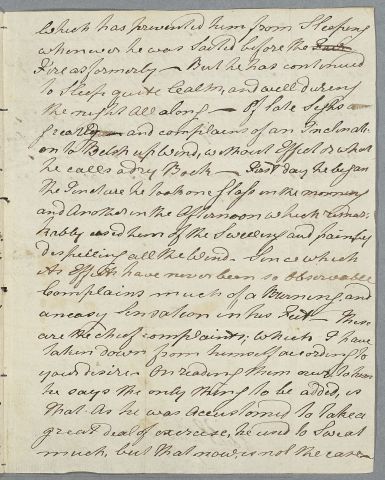 Which has prevented him from Sleeping
whenever he was Seated before the
Fire as formerly – But he has continued
to Sleep quite Calm, and well dureing
the night All along – Of late Sighs a
great and complains of an Inclinati-
on to Belch up Wind, without Effect or what
he calls a dry Bock – First day he began
the Tincture he took one Glass in the morning
and Another in the Afternoon which remar-
kably eased him of the Swelling and pain by
dispelling all the Wind – Since which
its Effects have never been so Observable
Complains much of a Burning and
uneasy Sensation in his Feet – These
are the chief complaints; which I have
taken down from himself according to
your desire. On reading them over to him
he says the only thing to be added, is
That As he was Accustomed to take a
great deal of exercise, he used to Sweat
much, but that now is not the case